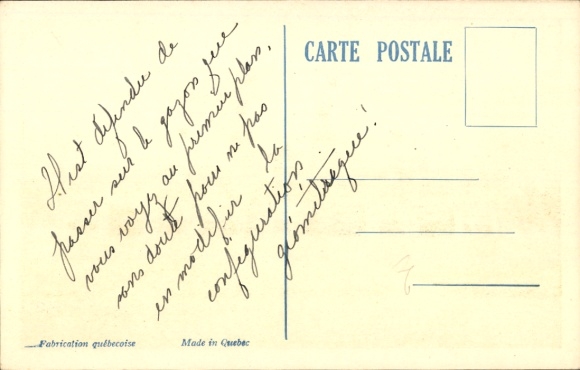 CARTE POSTALE
Il est défendu de
passer sur le gazon que
vous voyez au premier plan,
sans doute pour ne pas
en modifier la
configuration
géométrique!
Fabrication québecoise
Made in Quebec